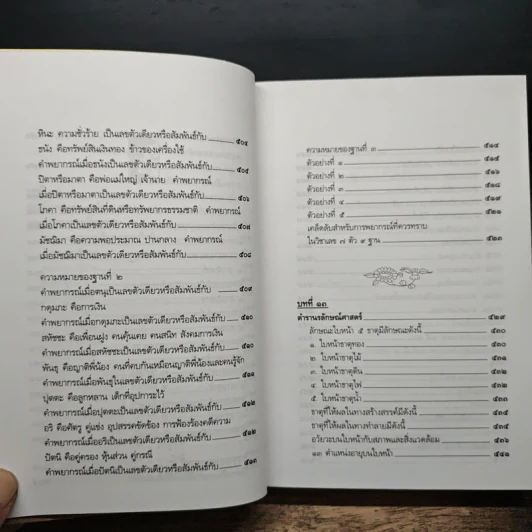 หินะ ความชั่วร้าย เป็นเลขตัวเดียวหรือสัมพันธ์กับ ๕๐๔
ธนัง คือทรัพย์สินเงินทอง ข้าวของเครื่องใช้
คำพยากรณ์เมื่อธนังเป็นเลขตัวเดียวหรือสัมพันธ์กับ ๕๐๕
ปิตาหรือมาตา คือพ่อแม่ใหญ่ เจ้านาย คำพยากรณ์
เมื่อปิตาหรือมาตาเป็นเลขตัวเดียวหรือสัมพันธ์กับ ๕๐๖
โภคา คือทรัพย์สินที่ดินหรือทรัพยากรธรรมชาติ คำพยากรณ์
เมื่อโภคาเป็นเลขตัวเดียวหรือสัมพันธ์กับ ๕๐๗
มัชฌิมา คือความพอประมาณ ปานกลาง คำพยากรณ์
เมื่อมัชฌิมาเป็นเลขตัวเดียวหรือสัมพันธ์กับ ๕๐๘
ความหมายของฐานที่ ๒
คำพยากรณ์เมื่อตนุเป็นเลขตัวเดียวหรือสัมพันธ์กับ ๕๐๙
กดุมภะ คือการเงิน
คำพยากรณ์เมื่อกดุมภะเป็นเลขตัวเดียวหรือสัมพันธ์กับ ๕๑๐
สหัชชะ คือเพื่อนฝูง คนคุ้นเคย คนสนิท สังคมการเงิน
คำพยากรณ์เมื่อสหัชชะเป็นเลขตัวเดียวหรือสัมพันธ์กับ ๕๑๐
พันธุ คือญาติพี่น้อง คนที่คบกันเหมือนญาติพี่น้องและคนรู้จัก
คำพยากรณ์เมื่อพันธุเป็นเลขตัวเดียวหรือสัมพันธ์กับ ๕๑๑
ปุตตะ คือลูกหลาน เด็กที่อุปการะไว้
คำพยากรณ์เมื่อปุตตะเป็นเลขตัวเดียวหรือสัมพันธ์กับ ๕๑๒
อริ คือศัตรู คู่แข่ง อุปสรรคขัดข้อง การฟ้องร้องคดีความ
คำพยากรณ์เมื่ออริเป็นเลขตัวเดียวหรือสัมพันธ์กับ ๕๑๒
ปัตนิ คือคู่ครอง หุ้นส่วน คู่กรณี
คำพยากรณ์เมื่อปัตนิเป็นเลขตัวเดียวหรือสัมพันธ์กับ ๕๑๓
ความหมายของฐานที่ ๓ ๕๑๔
ตัวอย่างที่ ๑ ๕๑๕
ตัวอย่างที่ ๒ ๕๑๖
ตัวอย่างที่ ๓ ๕๑๘
ตัวอย่างที่ ๔ ๕๑๙
ตัวอย่างที่ ๕ ๕๒๑
เคล็ดลับสำหรับการพยากรณ์ที่ควรทราบ
ในวิชาเลข ๗ ตัว ๙ ฐาน ๕๒๓
บทที่ ๑๓
ตำรานรลักษณ์ศาสตร์ ๕๒๙
ลักษณะใบหน้า ๕ ธาตุมีลักษณะดังนี้ ๕๓๐
๑. ใบหน้าธาตุทอง ๕๓๐
๒. ใบหน้าธาตุไม้ ๕๓๑
๓. ใบหน้าธาตุดิน ๕๓๒
๔. ใบหน้าธาตุไฟ ๕๓๒
๕. ใบหน้าธาตุน้ำ ๕๓๓
ธาตุที่ให้ผลในทางสร้างสรรค์มีดังนี้ ๕๓๔
ธาตุที่ให้ผลในทางทำลายมีดังนี้ ๕๓๕
อวัยวะบนใบหน้ากับสภาพและสิ่งแวดล้อม ๕๓๖
๑๓ ตำแหน่งอายุบนใบหน้า ๕๔๑